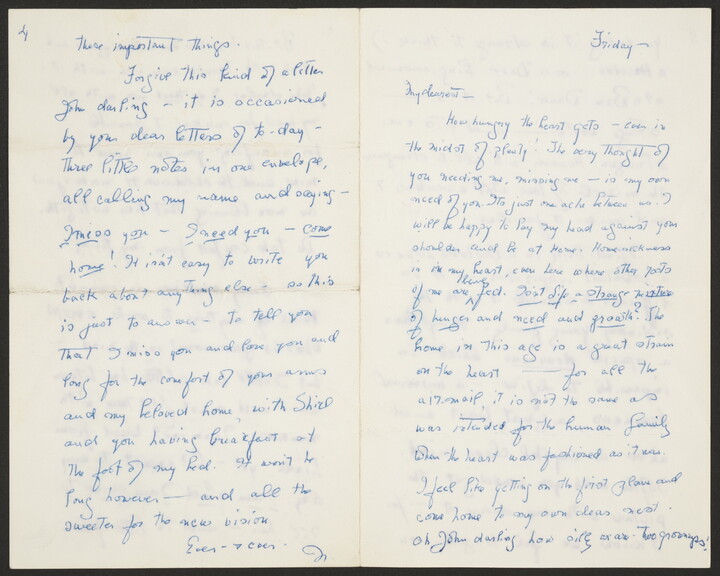 4
these important things.
Forgive this kind of a letter
John darling – it is occasioned
by your dear letters of to-day –
Three little notes in one envelope,
all calling my name and saying –
I miss you – I need you – come
home! It isn't easy to write you
back about anything else – so this
is just to answer – to tell you
that I miss you and love you and
long for the comfort of your arms
and my beloved home, with
and you having breakfast at
the foot of my bed. It won't be
long however – and all the
sweeter for the new vision
Ever – & ever.
Friday –
My dearest –
How hungry the heart gets – even in
the midst of plenty! The very thought of
you needing me, missing me – is my own
need of you. Its just one ache between us. I
will be happy to lay my head against your
shoulder and be at Home. Homesickness
is in my heart, even here where other parts
of me are being fed. Isn't life a strange mixture
of hunger and need and growth? The
home in this age is a great strain
on the heart — for all the
air-mail, it is not the same as
was intended for the human family
when the heart was fashioned as it was.
I feel like getting on the first plane and
come home to my own dear nest.
Oh John darling how silly we are – two grownups!